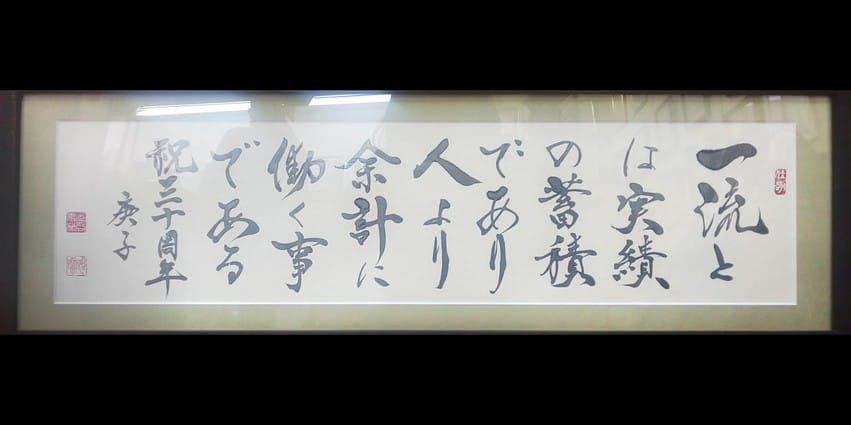 一流と
は実績
の蓄積
であり
人より
余計に
働く事
である
祝三十周年
庚子